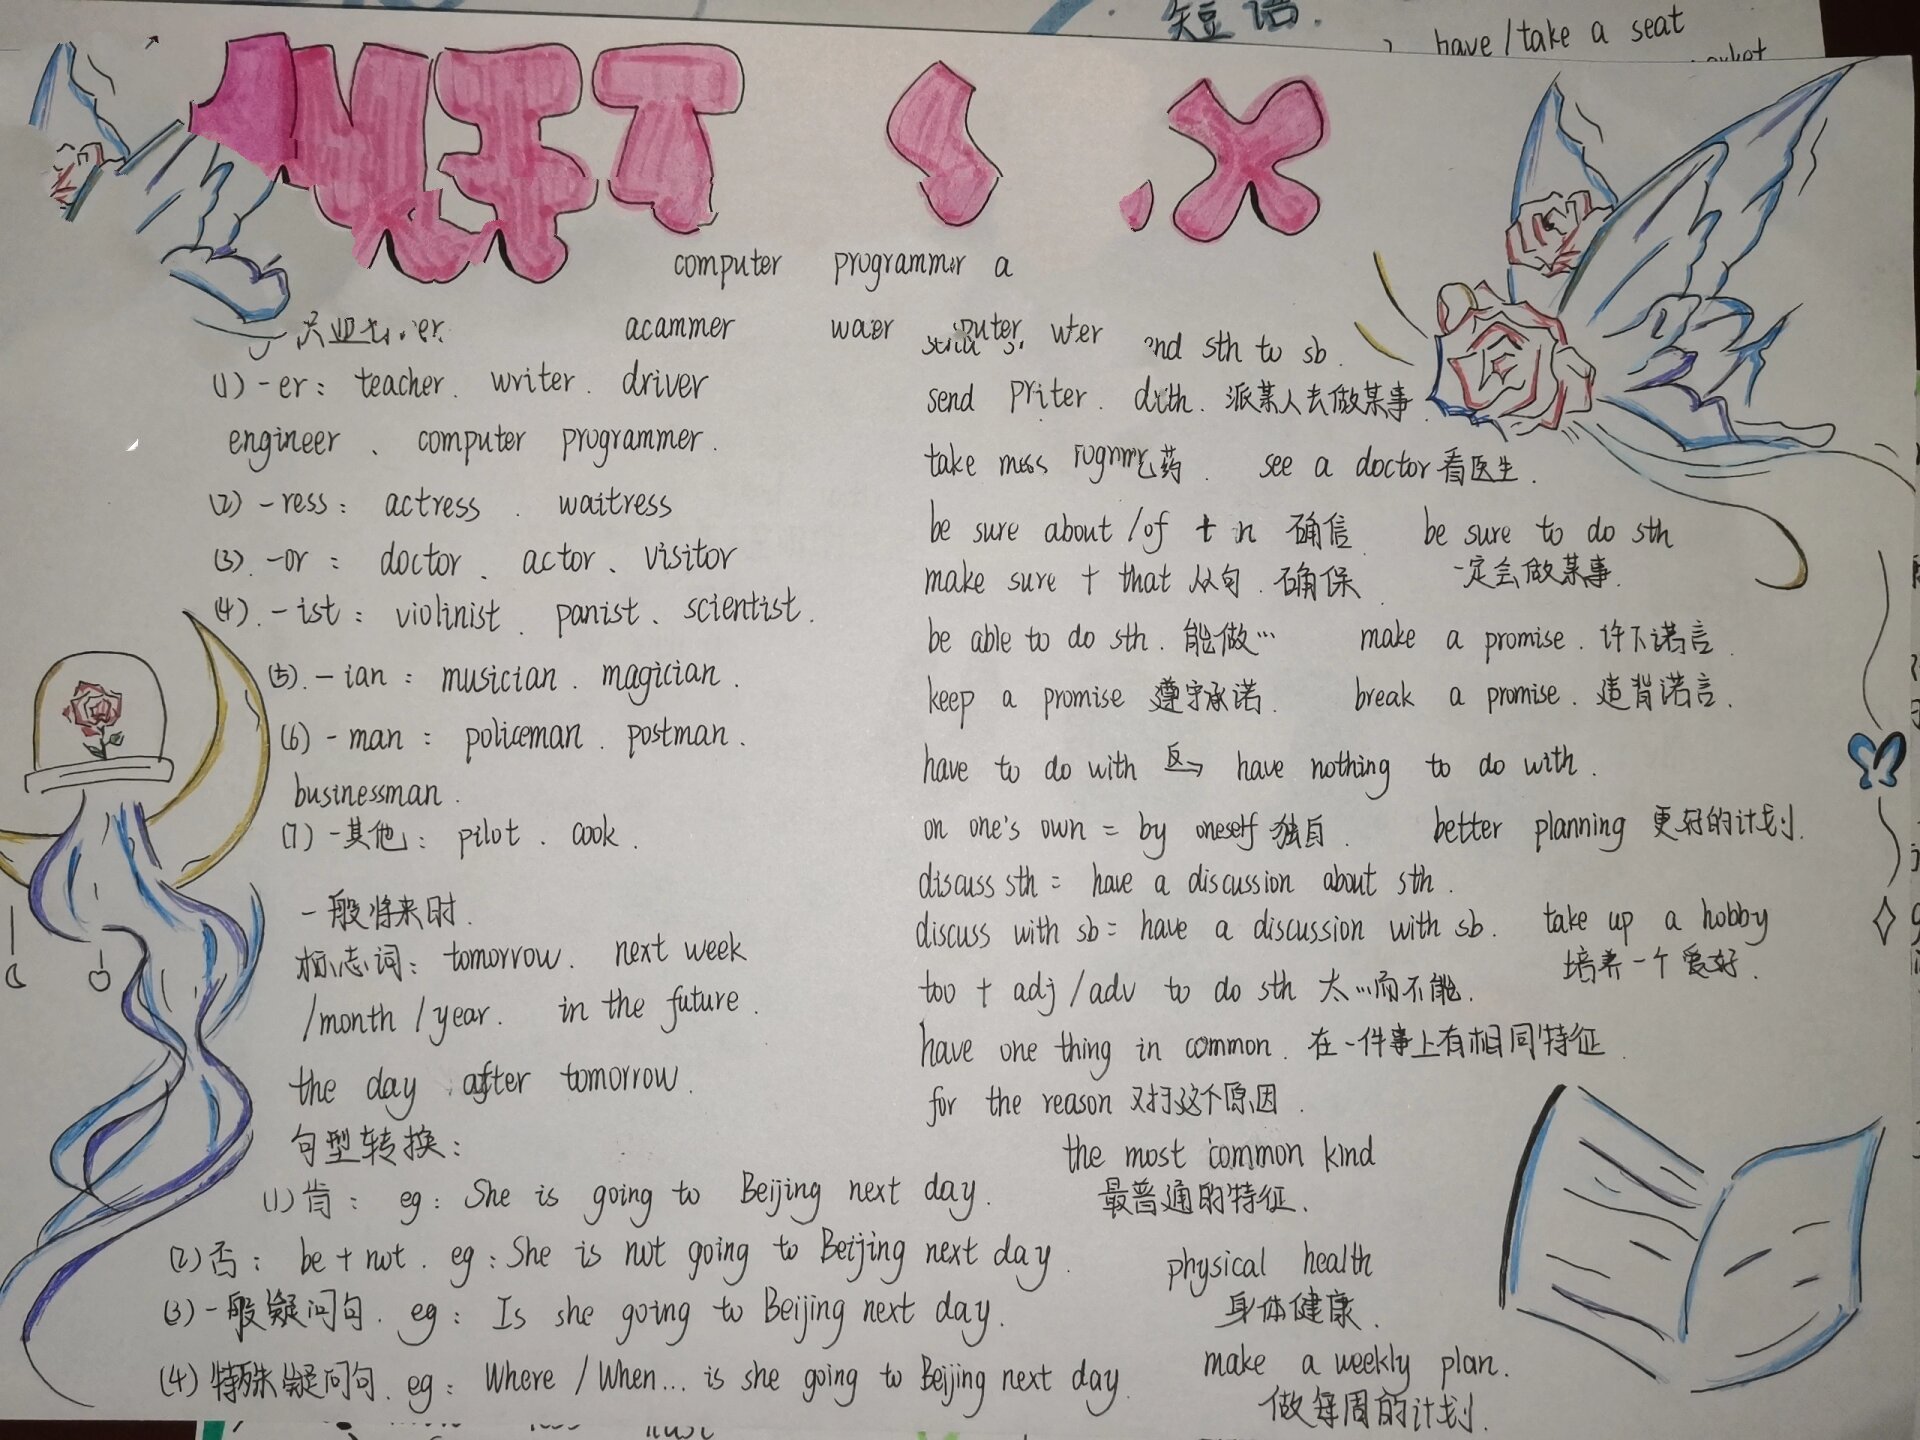 短语.
have/take a seat
computer programmer a
(1) -er: teacher. writer. driver
engineer 、 computer programmer.
(2) -ress: actress . waitress
(3). -or: doctor、 actor、 visitor
(4). -ist: violinist . panist、 scientist.
(5). -ian: musician . magician .
(6) -man: policeman . postman .
businessman .
(7) -其他: pilot . cook .
一般将来时.
标志词: tomorrow. next week
/month /year. in the future .
the day after tomorrow.
句型转换:
(1) 肯: eg: She is going to Beijing next day.
(2) 否: be + not. eg: She is not going to Beijing next day.
(3) 一般疑问句. eg: Is she going to Beijing next day.
(4) 特殊疑问句. eg: Where /When... is she going to Beijing next day.
sth to sb.
send 派某人去做某事.
take 药. see a doctor 看医生.
be sure about /of + n 确信 be sure to do sth
一定会做某事.
make sure + that 从句. 确保
be able to do sth. 能做… make a promise. 许下诺言.
keep a promise 遵守承诺. break a promise. 违背诺言.
have to do with 反→ have nothing to do with .
on one's own = by oneself 独自. better planning 更好的计划.
discuss sth = have a discussion about sth .
discuss with sb = have a discussion with sb. take up a hobby
培养一个爱好.
too + adj /adv to do sth 太…而不能.
have one thing in common. 在一件事上有相同特征.
for the reason 对于这个原因.
the most common kind
最普通的特征.
physical health
身体健康.
make a weekly plan.
做每周的计划.